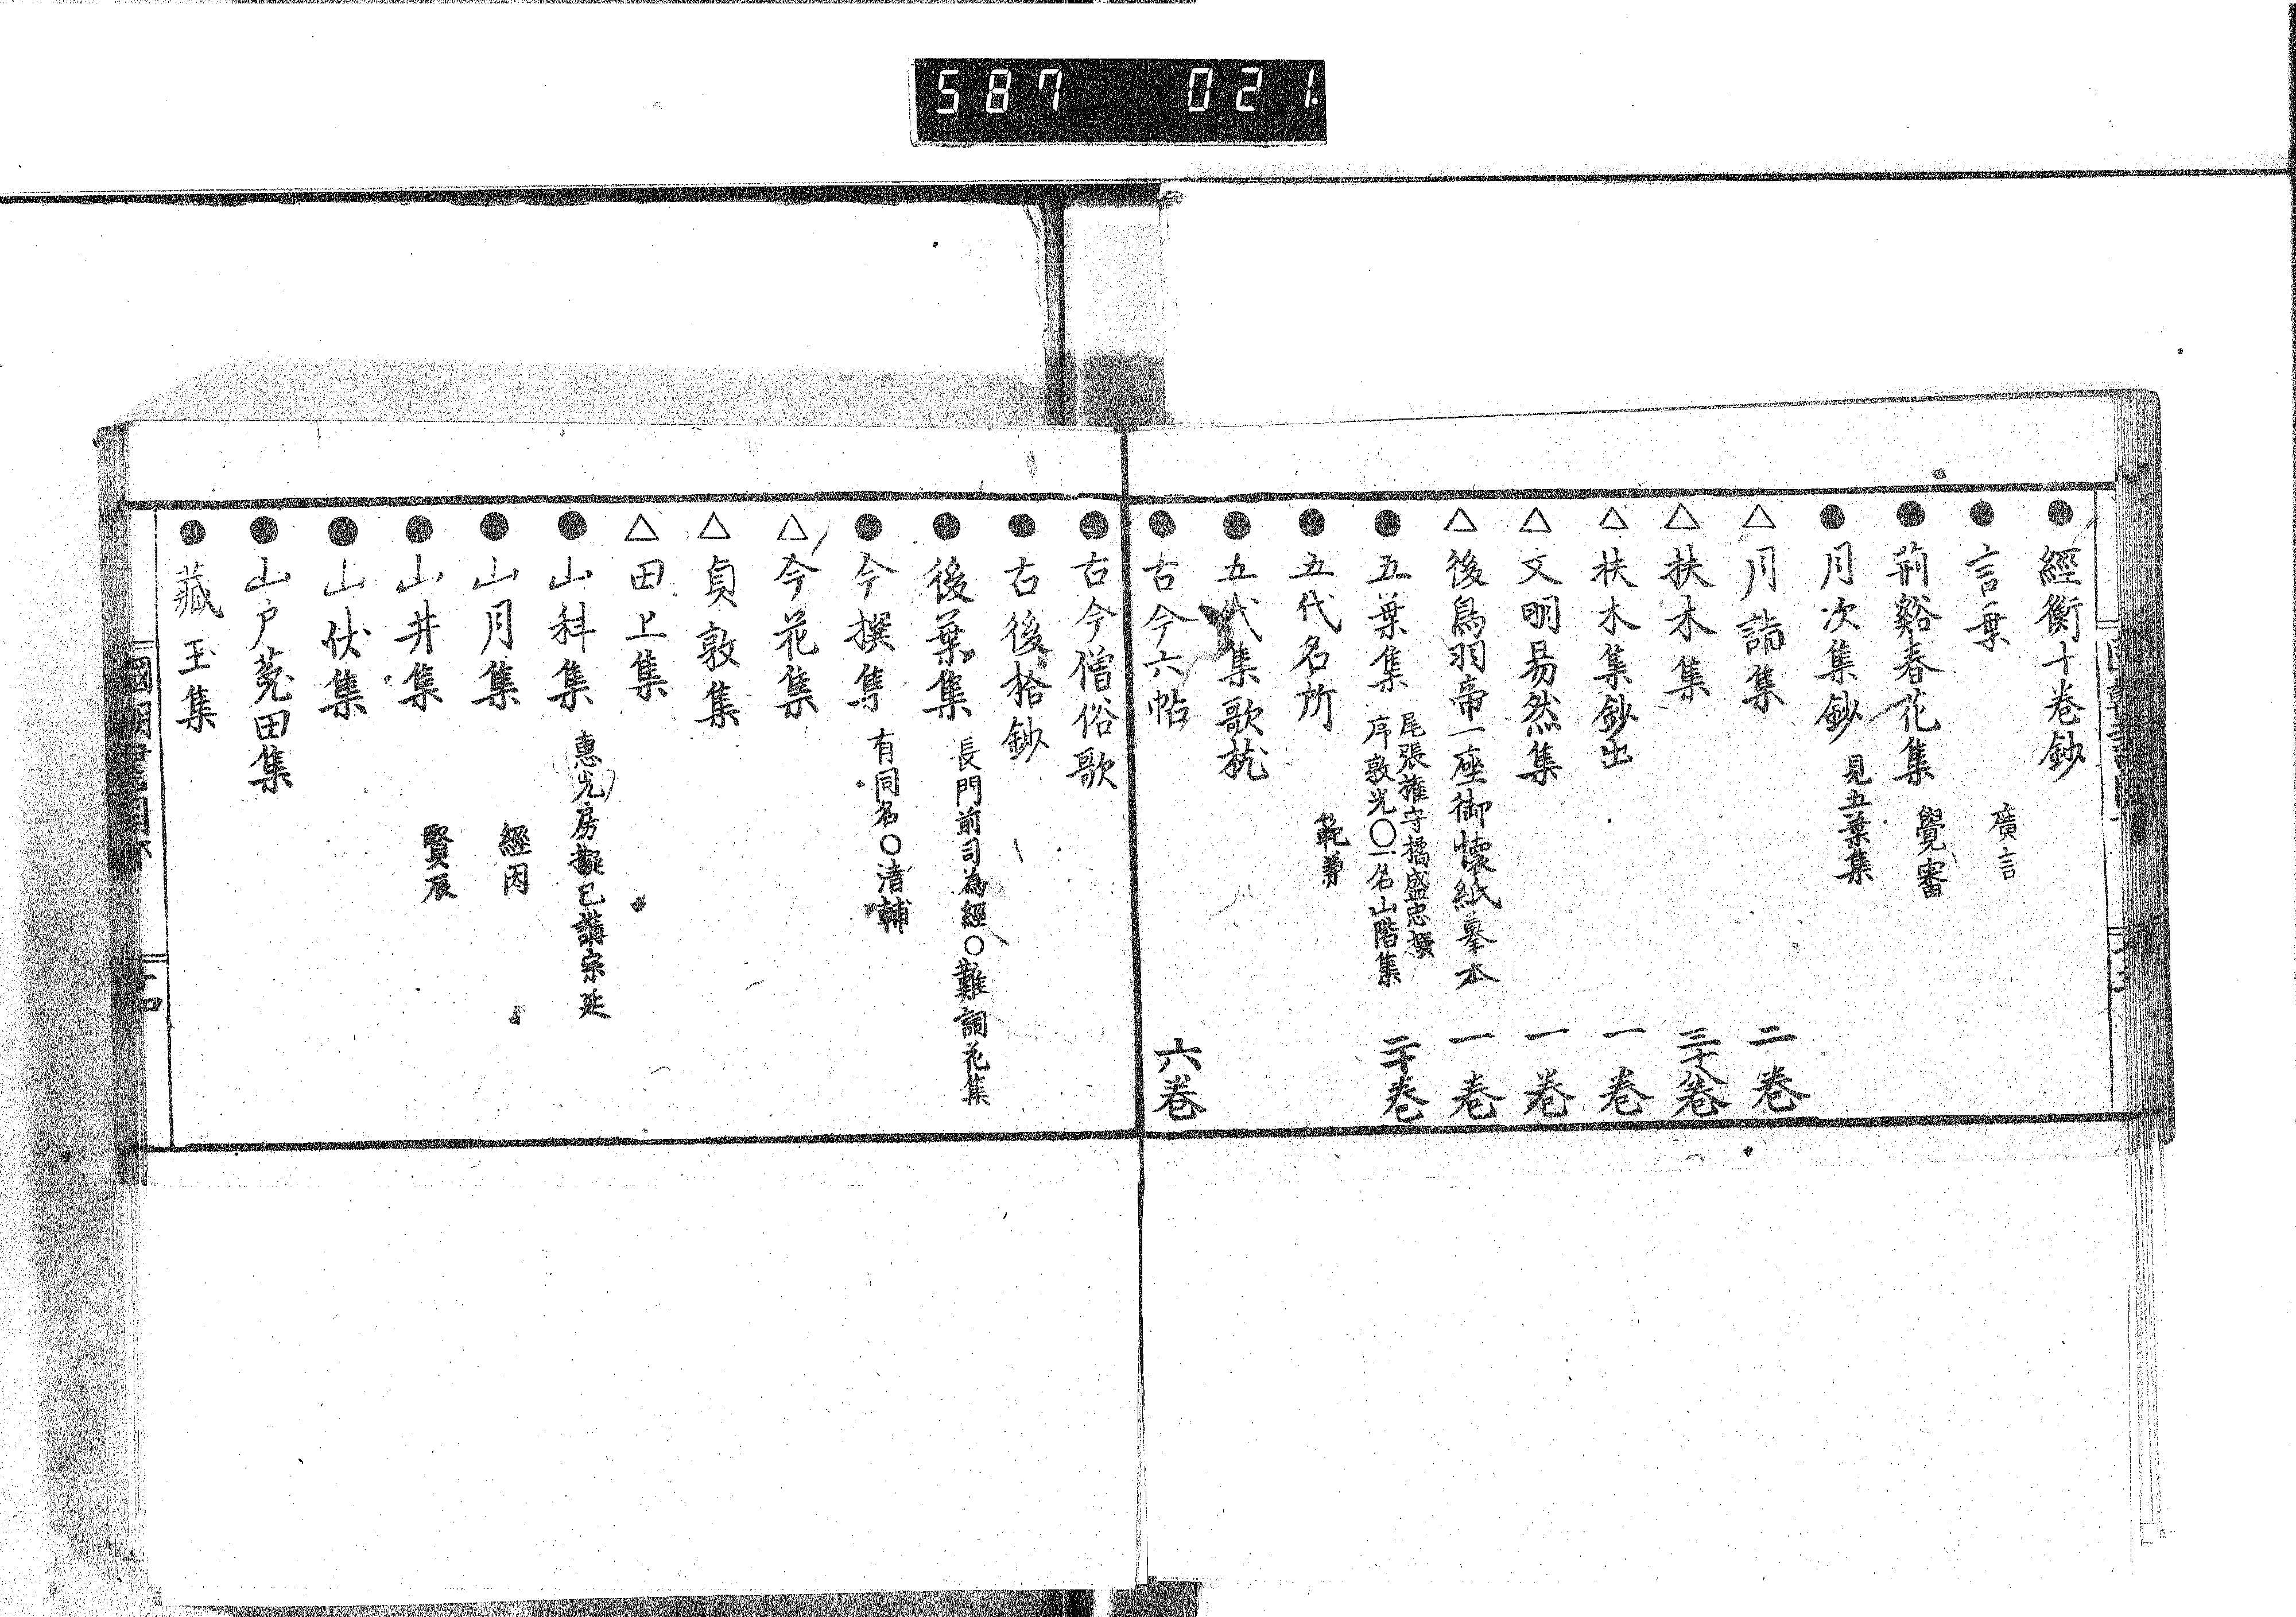 587 021
●經衡十卷鈔
●言葉 廣言
●荊谿春花集 覺審
●月次集鈔 見五葉集
△月詣集 二卷
△扶木集 三十八卷
△扶木集鈔出 一卷
△文明易然集 一卷
△後鳥羽帝一座御懷紙摹本 一卷
●五葉集 尾張權守橘盛忠撰 序敦光○一名山階集 二十卷
●五代名所 範兼
●五代集歌枕
●古今六帖 六卷
●古今僧俗歌
●古後拾鈔
●後葉集 長門前司為經○難詞花集
●今撰集 有同名○清輔
△今花集
△貞敦集
△田上集
●山科集 惠光房擬已講宗延
●山月集 經因
●山井集 賢辰
●山伏集
●山戶菟田集
●藏玉集